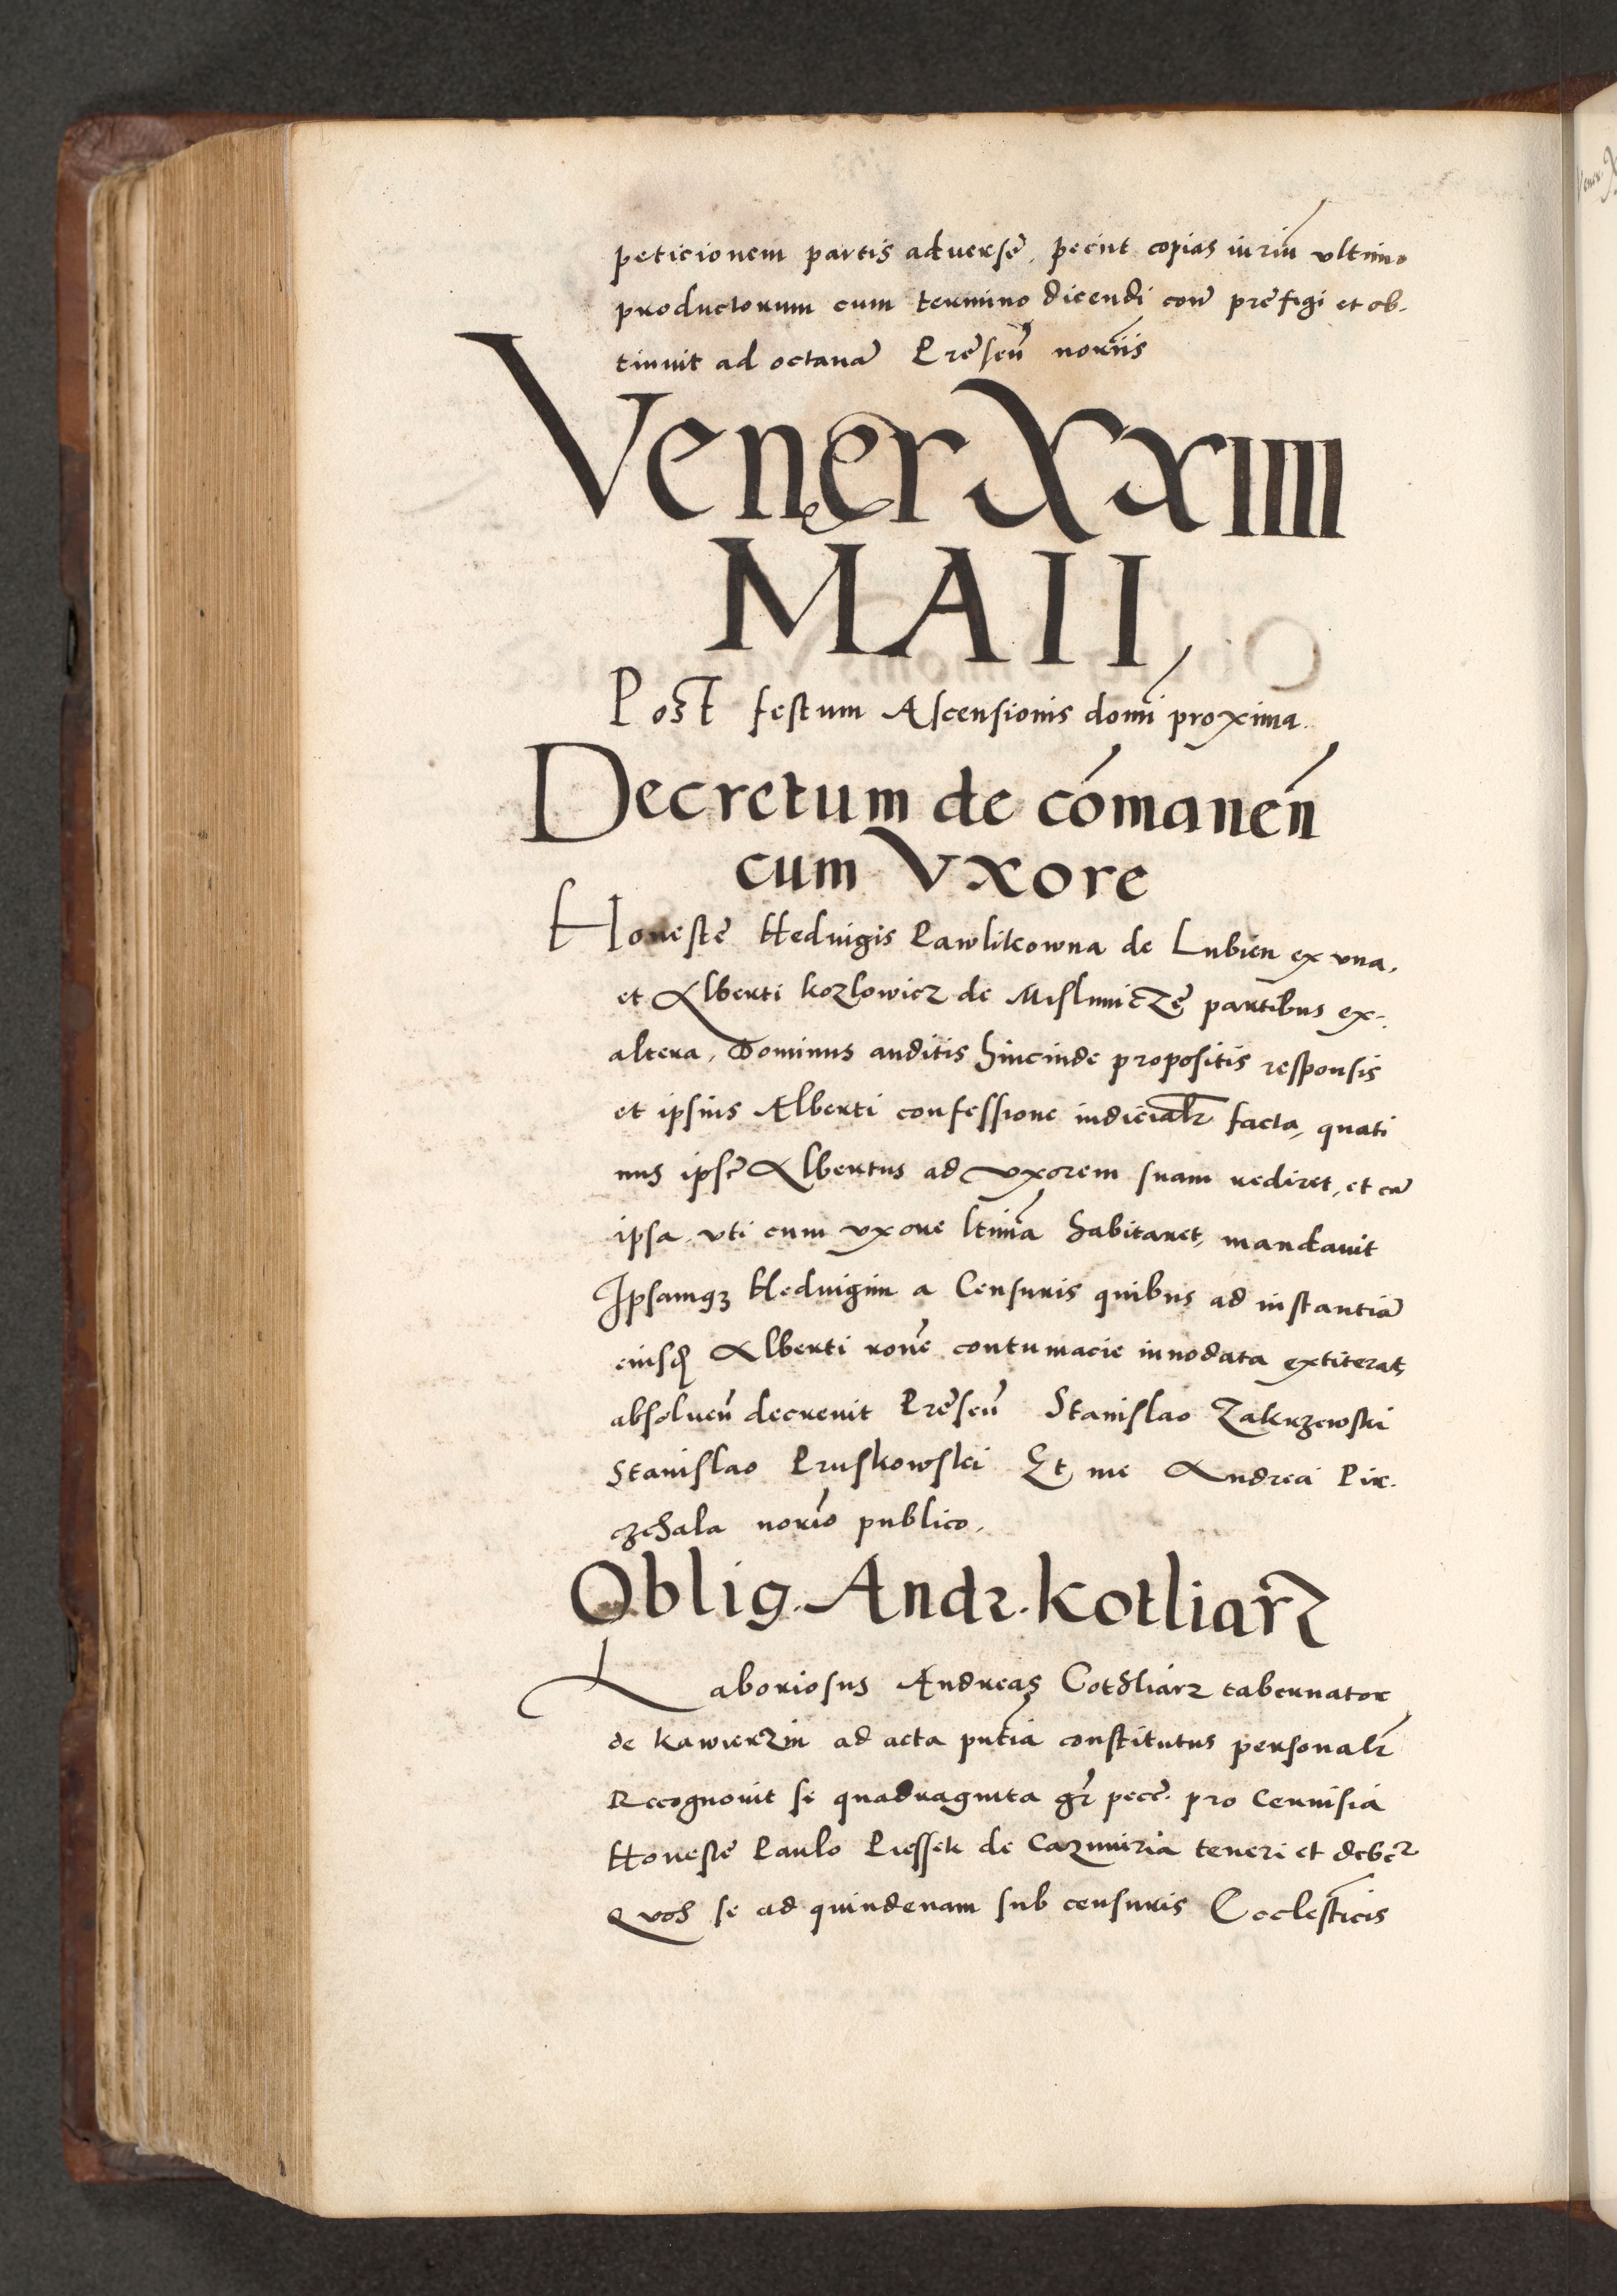 peticionem partis adverse, peciit copias iuriu ultimo
productorum cum termino dicendi con prefigi et ob-
tinuit ad octava Presen noriis
Vener XXIIII
MAII,
Post festum Ascensionis domi proxima.
Decretum de comanen
cum Vxore
Honeste Hedvigis Pawlikowna de Lubien ex vna,
et Alberti Kozlowicz de Mislimicze partibus ex-
altera, Dominus auditis hincinde propositis responsis
et ipsius Alberti confessione iudicialr facta, quati
nus ipse Albertus ad vxorem suam rediret, et cu
ipsa vti cum vxore ltima habitaret, mandauit
Ipsamqz Hedvigim a Censuris quibus ad instantia
eiusd Alberti rone contumacie innodata extiterat,
absoluen decreuit Presen Stanislao Zakrzewski
Stanislao Pruskowski Et me Andrea Pir-
czchala norio publico,
Oblig. Andr. Kotliarz
Laboriosus Andreas Cothliarz tabernator
de Kawierzin ad acta pntia constitutus personalr
Recognouit se quadraginta gr pecc. pro Ceruisia
Honeste Paulo Piessek de Cazimiria teneri et deber
Quos se ad quindenam sub censuris Ecclesticis